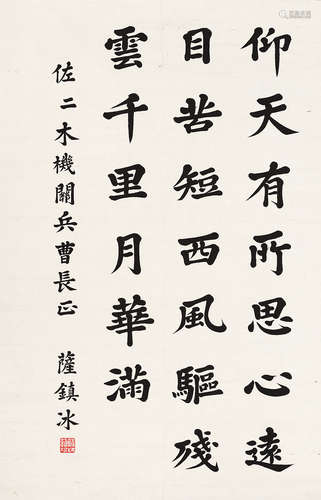 仰天有所思心遠
目苦短西風驅殘
雲千里月華滿
佐二木機關兵曹長正
薩鎮冰